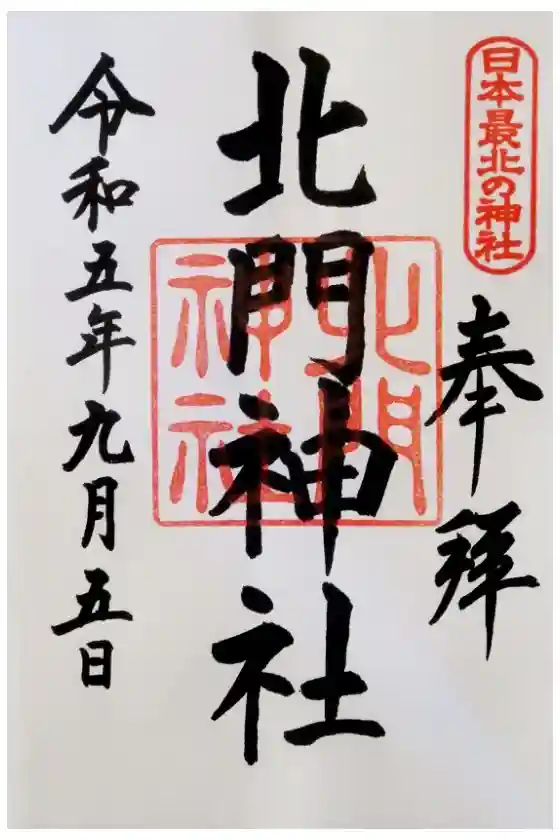 日本最北の神社
奉拜
北門神社
北門
神社
令和五年九月五日